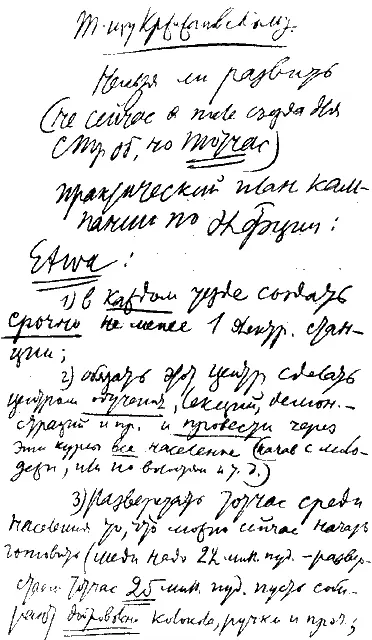 Т-щу Кржижановскому.
Нельзя ли развить
(не сейчас а после съезда для
но тотчас)
практический план кам-
пании по электрификации:
Etwa:
1) в каждом уезде создать
срочно не менее 1 электр. стан-
ции;
2) обязать этот центр сделать
центром обучения, лекций, демон-
страций и пр. и провести через
эти курсы все население (начав с моло-
дежи, или по волостям и т. д.)
3) Разверстать тотчас среди
населения то, что можно сейчас начать
готовить (меди надо 22 мил. пуд. - развер-
стаем тотчас 2,5 мил. пуд. пусть соби-
рают добровольно колокола, ручки и проч.;